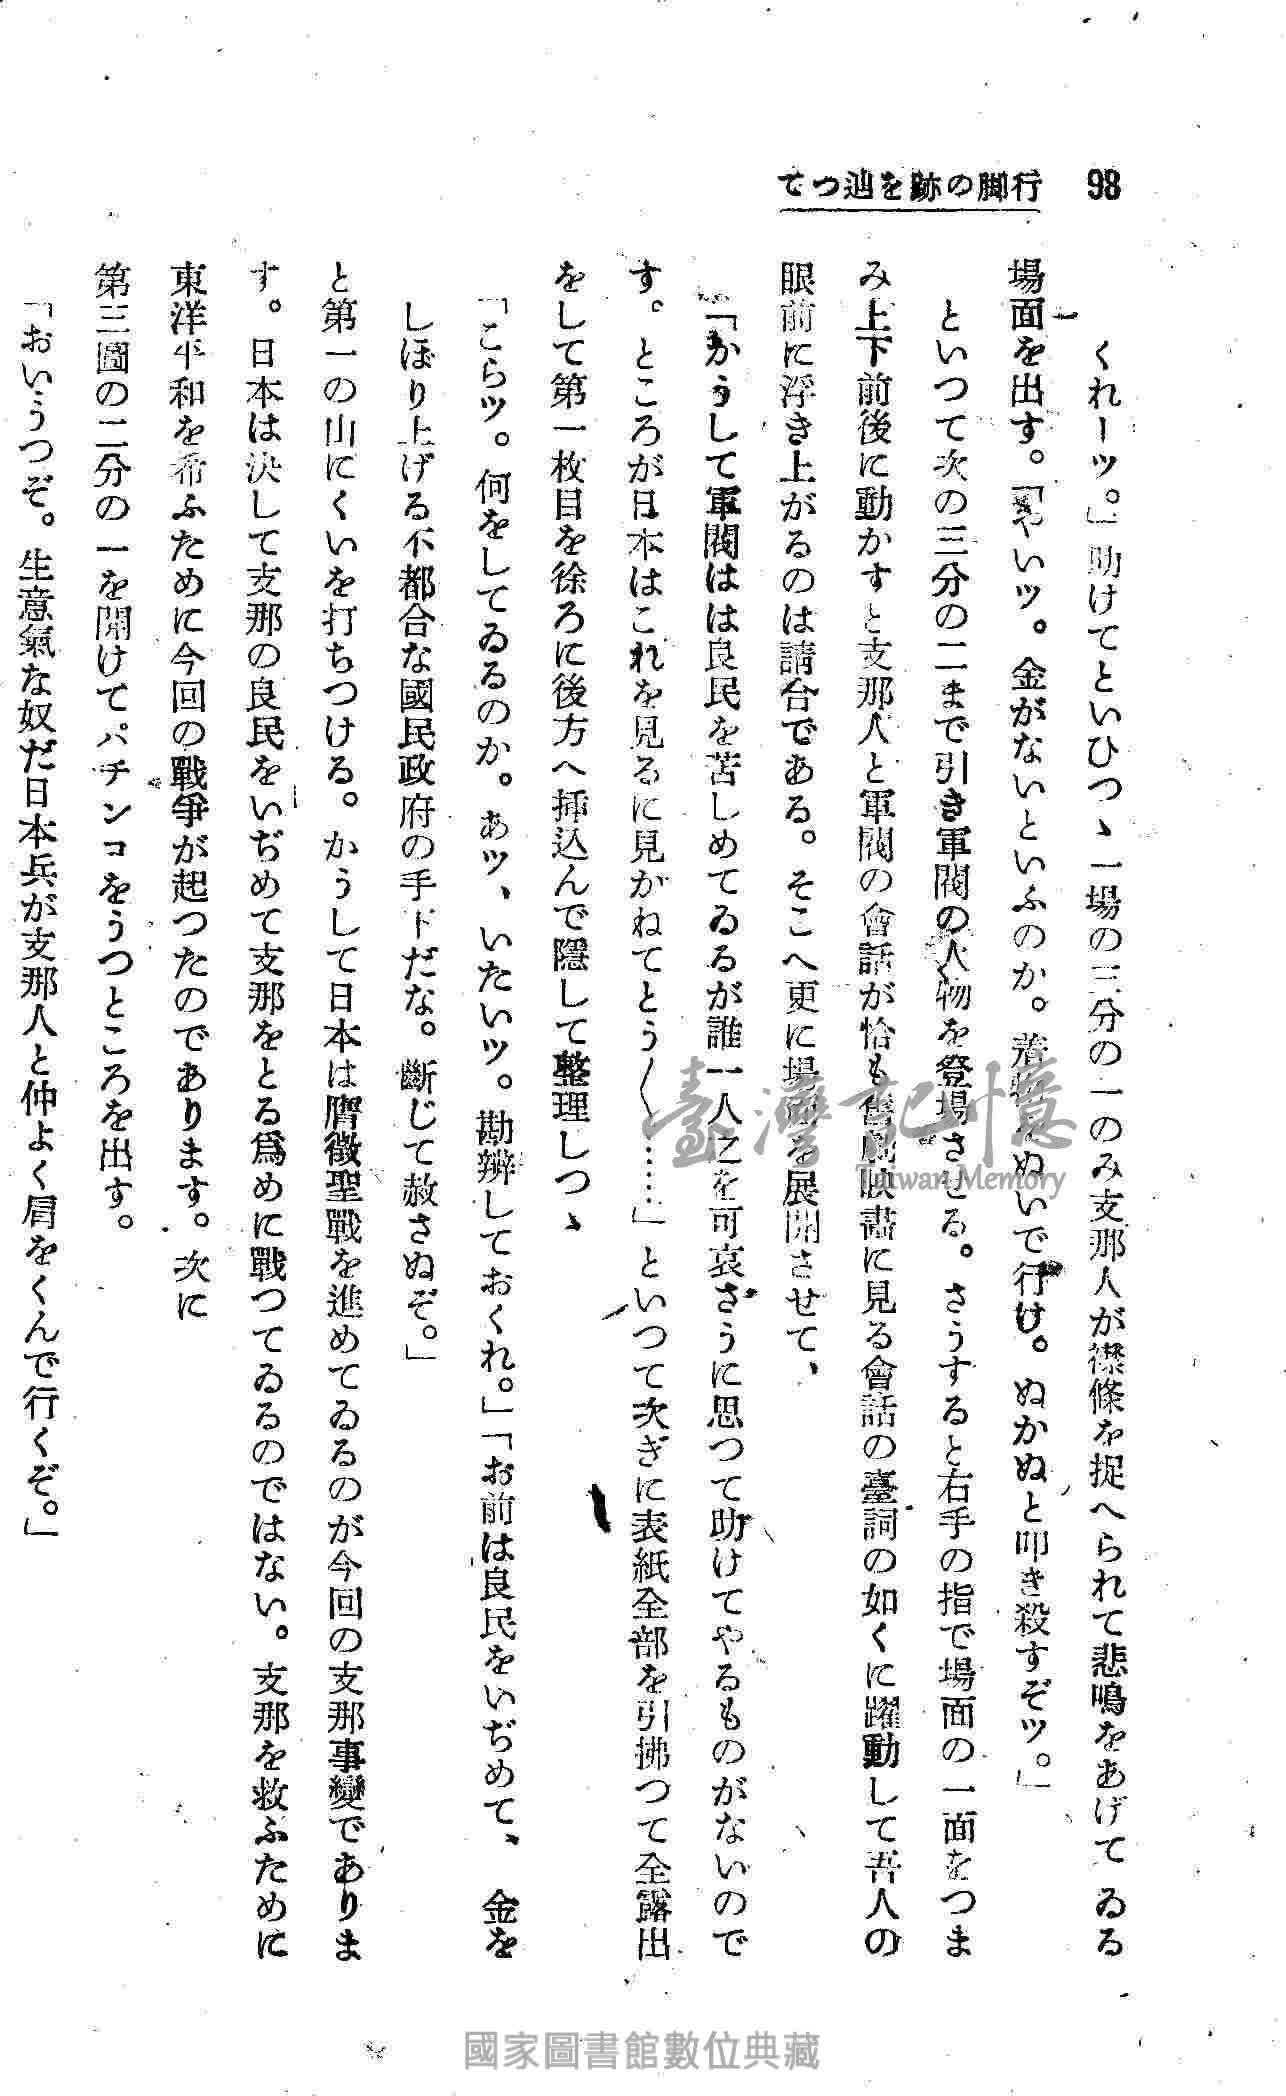 98
行脚の跡を辿つて
くれーツ。」助けてといひつゝ一場の三分の一のみ支那人が襟條を捉へられて悲鳴をあげてゐる
場面を出す。「やいツ。金がないといふのか。着物をぬいで行け。ぬかぬと叩き殺すぞツ。」
といつて次の三分の二まで引き軍閥の人物を登場させる。さうすると右手の指で場面の一面をつま
み上下前後に動かすと支那人と軍閥の會話が恰も舊劇映畵に見る會話の臺詞の如くに躍動して吾人の
眼前に浮き上がるのは請合である。そこへ更に場面を展開させて、
「かうして軍閥はは良民を苦しめてゐるが誰一人之を可哀ざうに思つて助けてやるものがないので
す。ところが日本はこれを見るに見がねてとう〳〵……」といつて次ぎに表紙全部を引拂つて全露出
をして第一枚目を徐ろに後方へ挿込んで隱して整理しつゝ
「こらツ。何をしてゐるのか。あツ、いたいツ。勘辨しておくれ。」「お前は良民をいぢめて、金を
しぼり上げる不都合な國民政府の手下だな。斷じて赦さぬぞ。」
と第一の山にくいを打ちつける。かうして日本は膺徵聖戰を進めてゐるのが今回の支那事變でありま
す。日本は決して支那の良民をいぢめて支那をとる爲めに戰つてゐるのではない。支那を救ふために
東洋平和を希ふために今回の戰爭が起つたのであります。次に
第三圖の二分の一を開けてパチンコをうつところを出す。
「おいうつぞ。生意氣な奴だ日本兵が支那人と仲よく肩をくんで行くぞ。」
臺灣記憶
Taiwan Memory
國家圖書館數位典藏